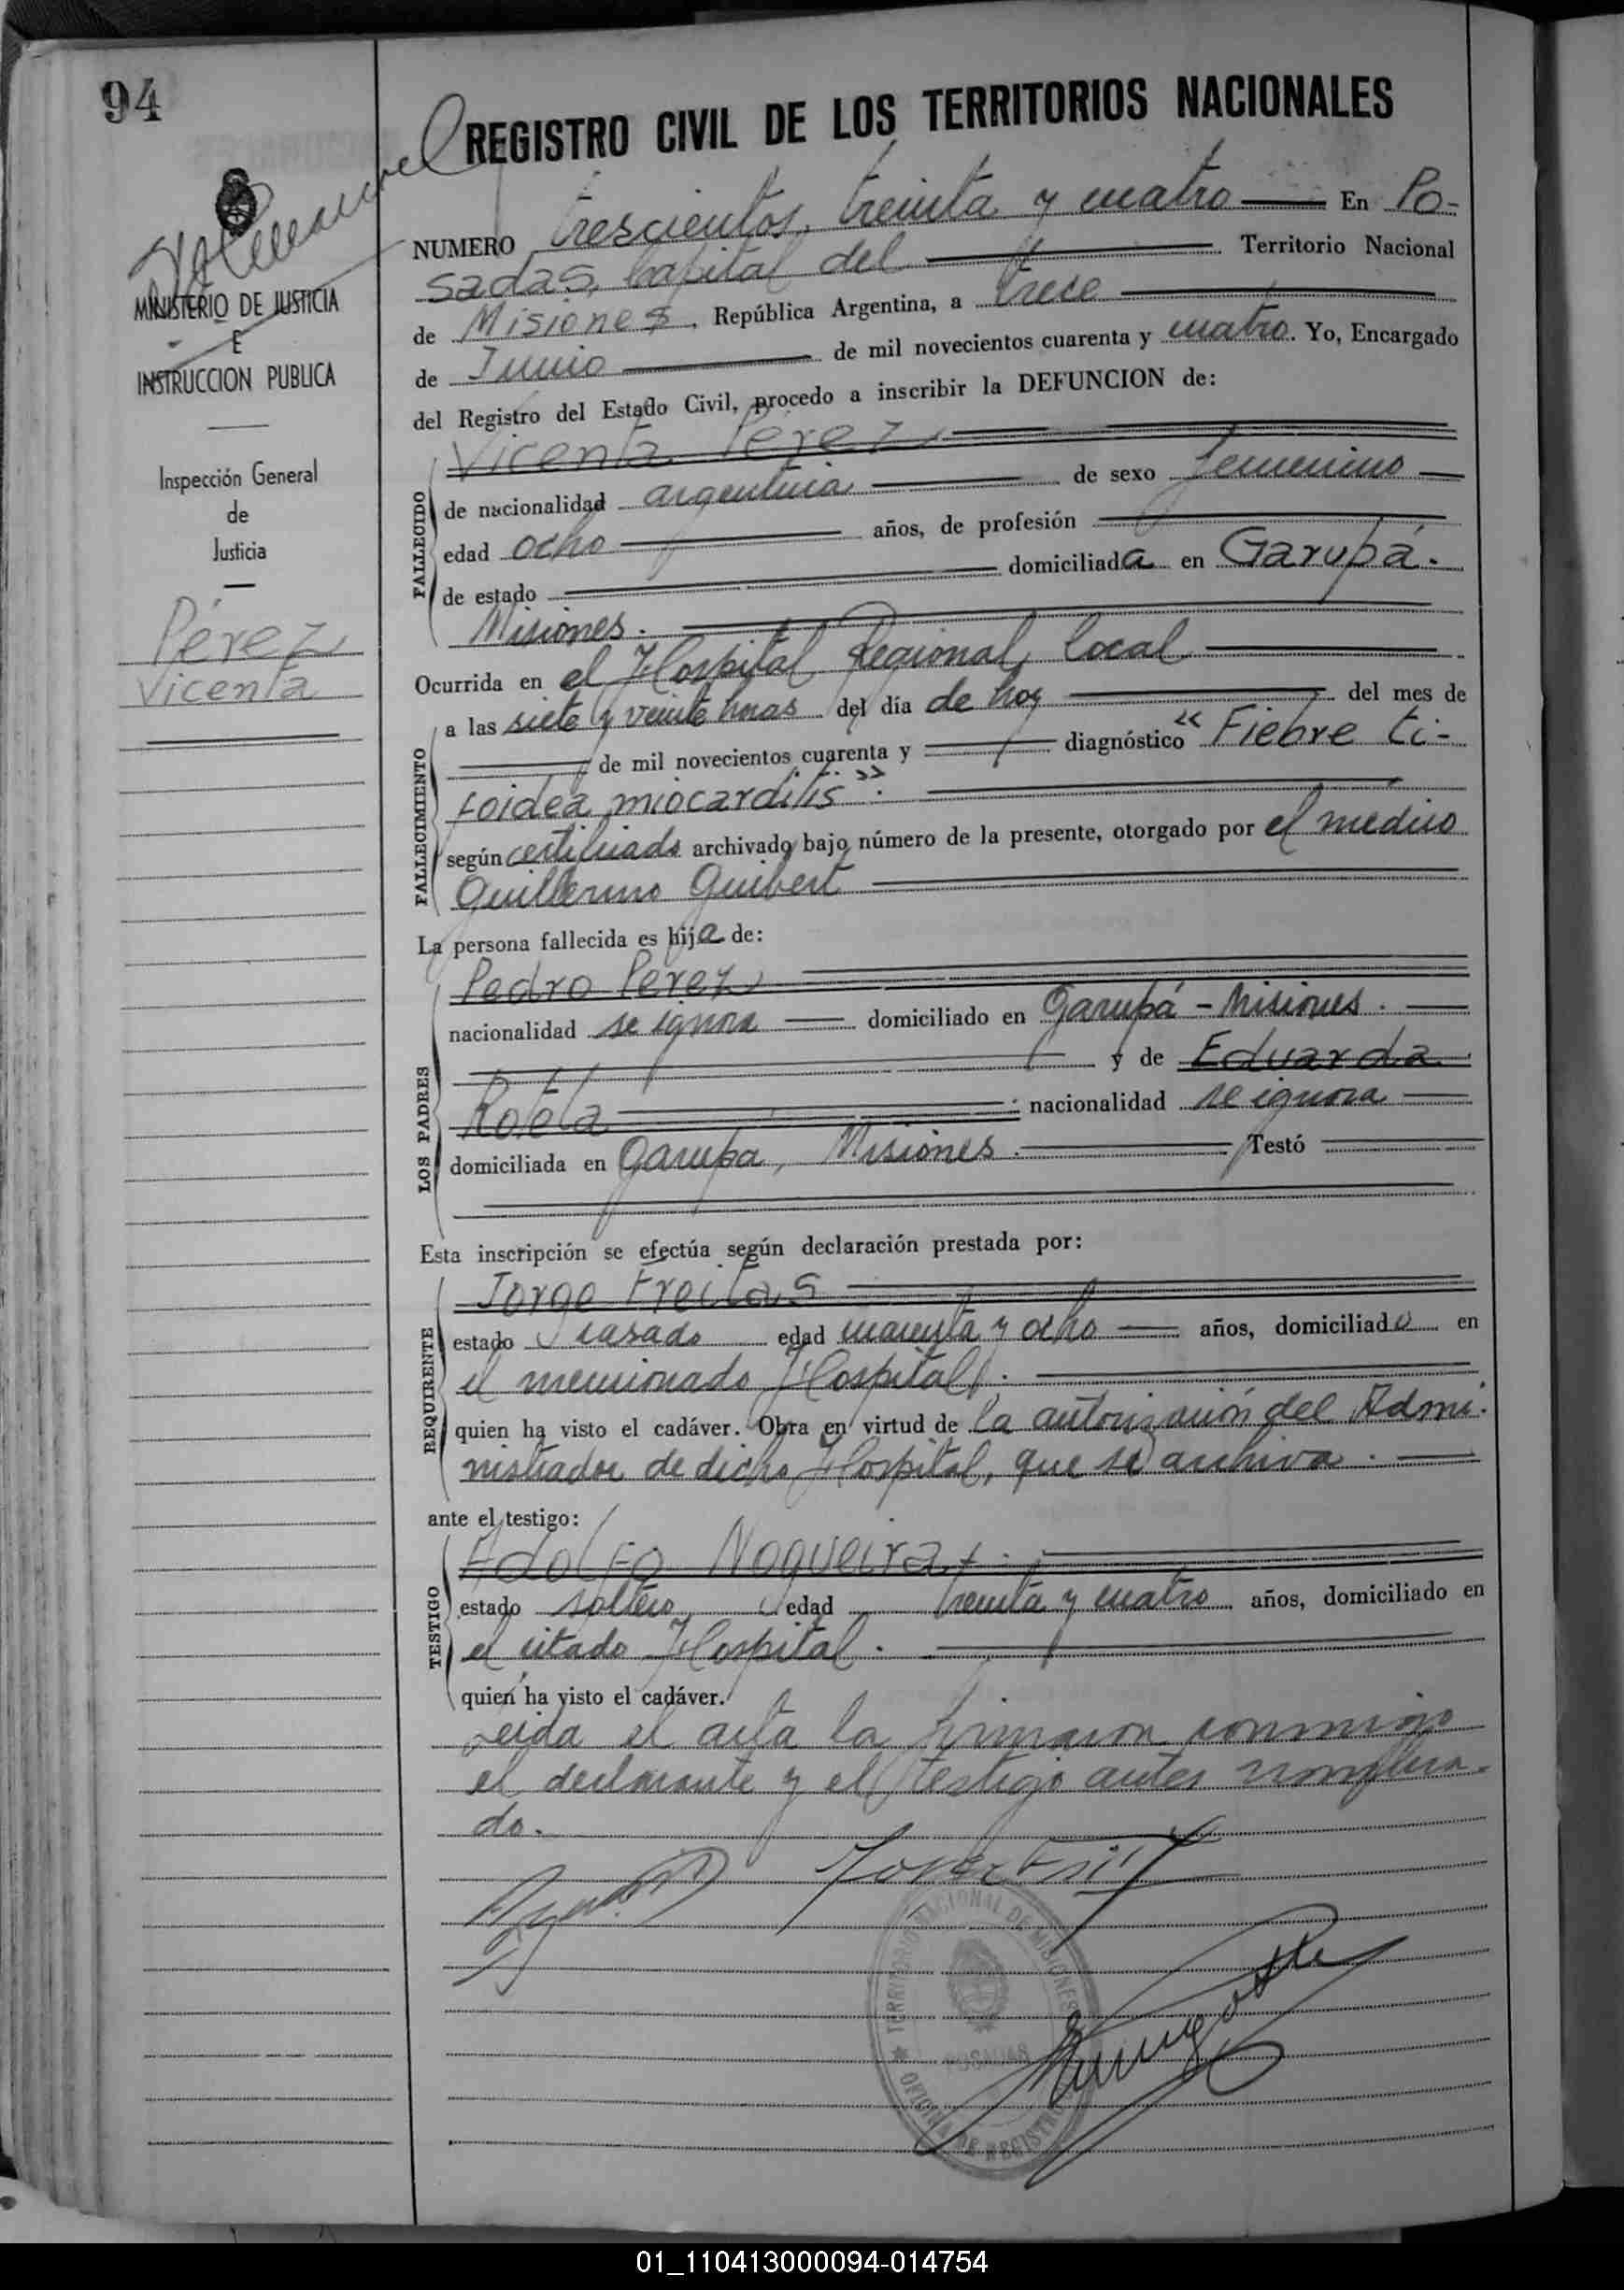 94
REGISTRO CIVIL DE LOS TERRITORIOS NACIONALES
MINISTERIO DE JUSTICIA
E
INSTRUCCION PUBLICA
Inspección General
de
Justicia
Pérez
Vicenta
NUMERO trescientos treinta y cuatro En Po-
sadas, Capital del Territorio Nacional
de Misiones, República Argentina, a trece
de Junio de mil novecientos cuarenta y cuatro. Yo, Encargado
del Registro del Estado Civil, procedo a inscribir la DEFUNCION de:
Vicenta Pérez
FALLECIDO
de nacionalidad argentina de sexo femenino
edad ocho años, de profesión
de estado domiciliada en Garupá.
Misiones.
Ocurrida en el Hospital Regional local
FALLECIMIENTO
a las siete y veinte horas del día de hoy del mes de
de mil novecientos cuarenta y diagnóstico "Fiebre ti-
foidea miocarditis".
según certificado archivado bajo número de la presente, otorgado por el médico
Guillermo Guibert
La persona fallecida es hija de:
LOS PADRES
Pedro Pérez
nacionalidad se ignora domiciliado en Garupá - Misiones.
y de Eduarda
Rotela nacionalidad se ignora
domiciliada en Garupá, Misiones. Testó
Esta inscripción se efectúa según declaración prestada por:
REQUIRENTE
Jorge Freitas
estado casado edad cuarenta y ocho años, domiciliado en
el mencionado Hospital.
quien ha visto el cadáver. Obra en virtud de la autorización del Admi-
nistrador de dicho Hospital, que se archiva.
ante el testigo:
TESTIGO
Adolfo Nogueira.
estado soltero edad treinta y cuatro años, domiciliado en
el citado Hospital.
quien ha visto el cadáver.
Leida el acta la firmaron conmigo
el declarante y el testigo antes nombra-
do.
TERRITORIO NACIONAL DE MISIONES
POSADAS
OFICINA DE REGISTRO
01_110413000094-014754